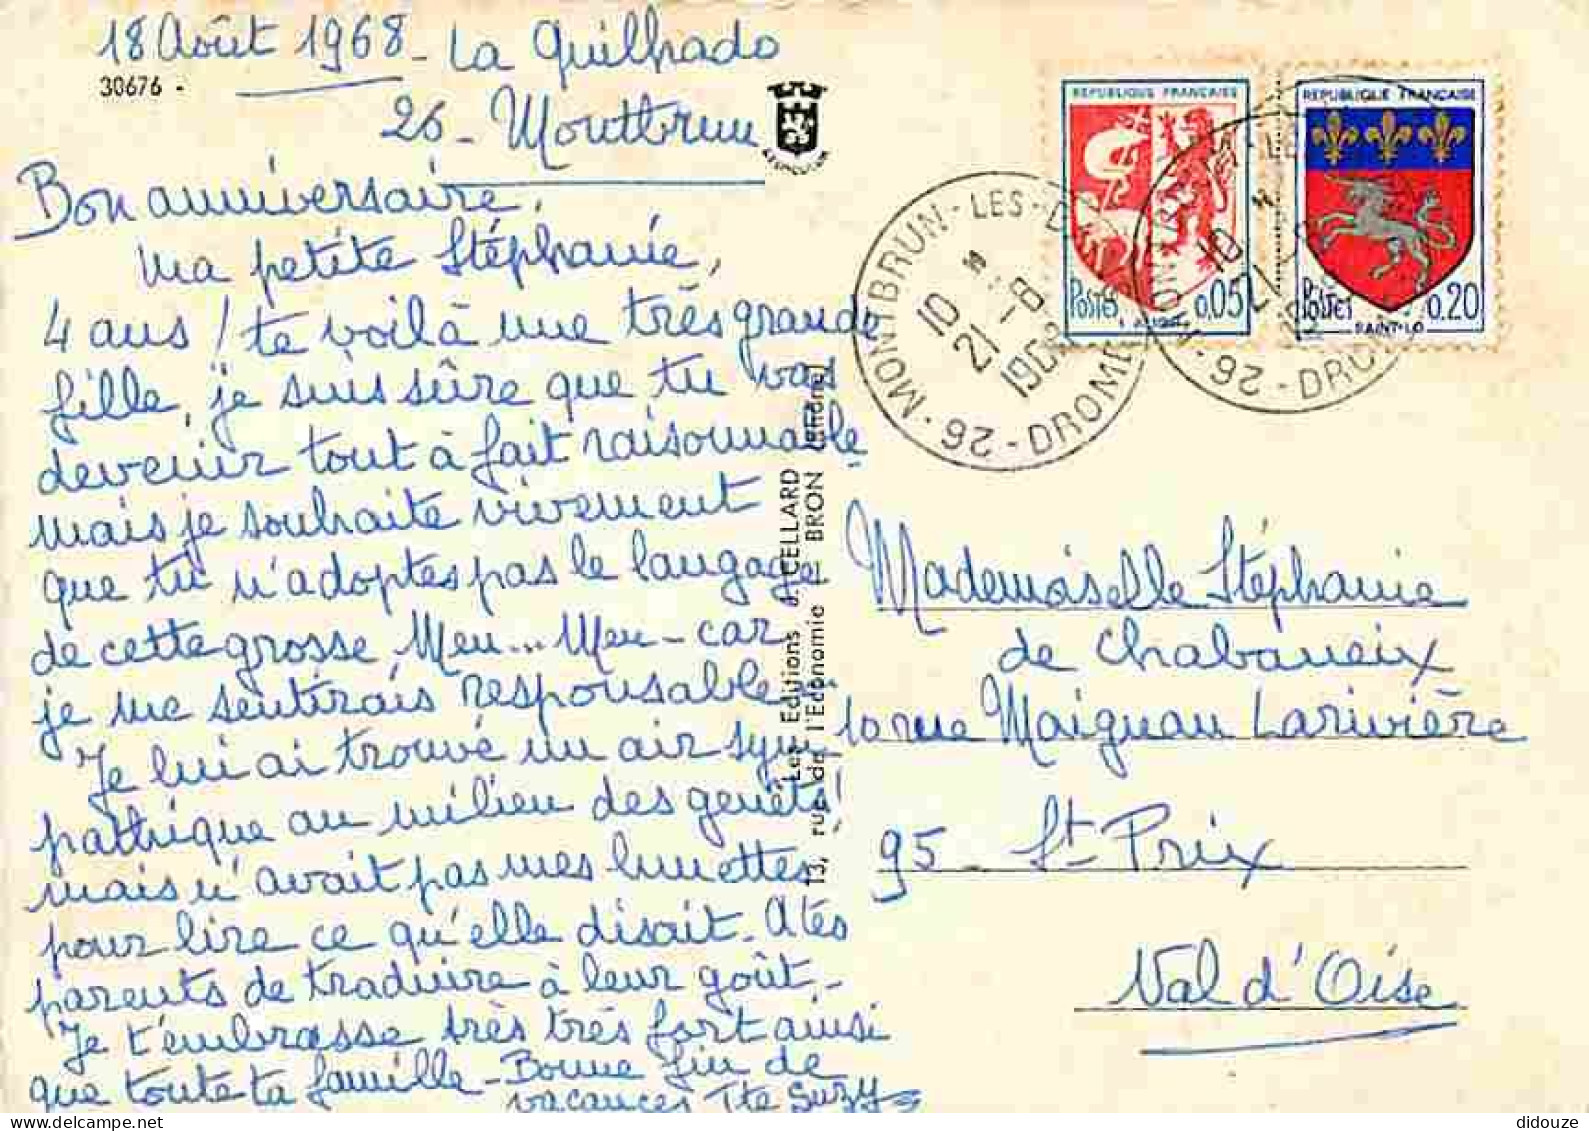 18 Août 1968 - La Guilhado
30676 -
26 - Montbrun
Bon anniversaire,
ma petite Stéphanie,
4 ans ! te voilà une très grande
fille, je suis sûre que tu vas
devenir tout à fait raisonnable
mais je souhaite vivement
que tu n'adoptes pas le langage
de cette grosse Meu... Meu - car
je me sentirais responsable -
Je lui ai trouvé un air sym
pathique au milieu des genêts!
mais n'avait pas mes lunettes
pour lire ce qu'elle disait. A tes
parents de traduire à leur goût. -
Je t'embrasse très très fort ainsi
que toute ta famille - Bonne fin de
vacances Tte Suzy
Les Editions J. CELLARD
13, rue de l'Economie - BRON (Rhône)
REPUBLIQUE FRANÇAISE
POSTES 0,05
REPUBLIQUE FRANÇAISE
POSTES 0,20
SAINT-LO
MONTBRUN-LES-
10 H
21 -8
1968
26 - DROME
10 H
21
26 - DROME
Mademoiselle Stéphanie
de Chabaneix
10 rue Maignan Larivière
95 - St Prix
Val d'Oise
didouze